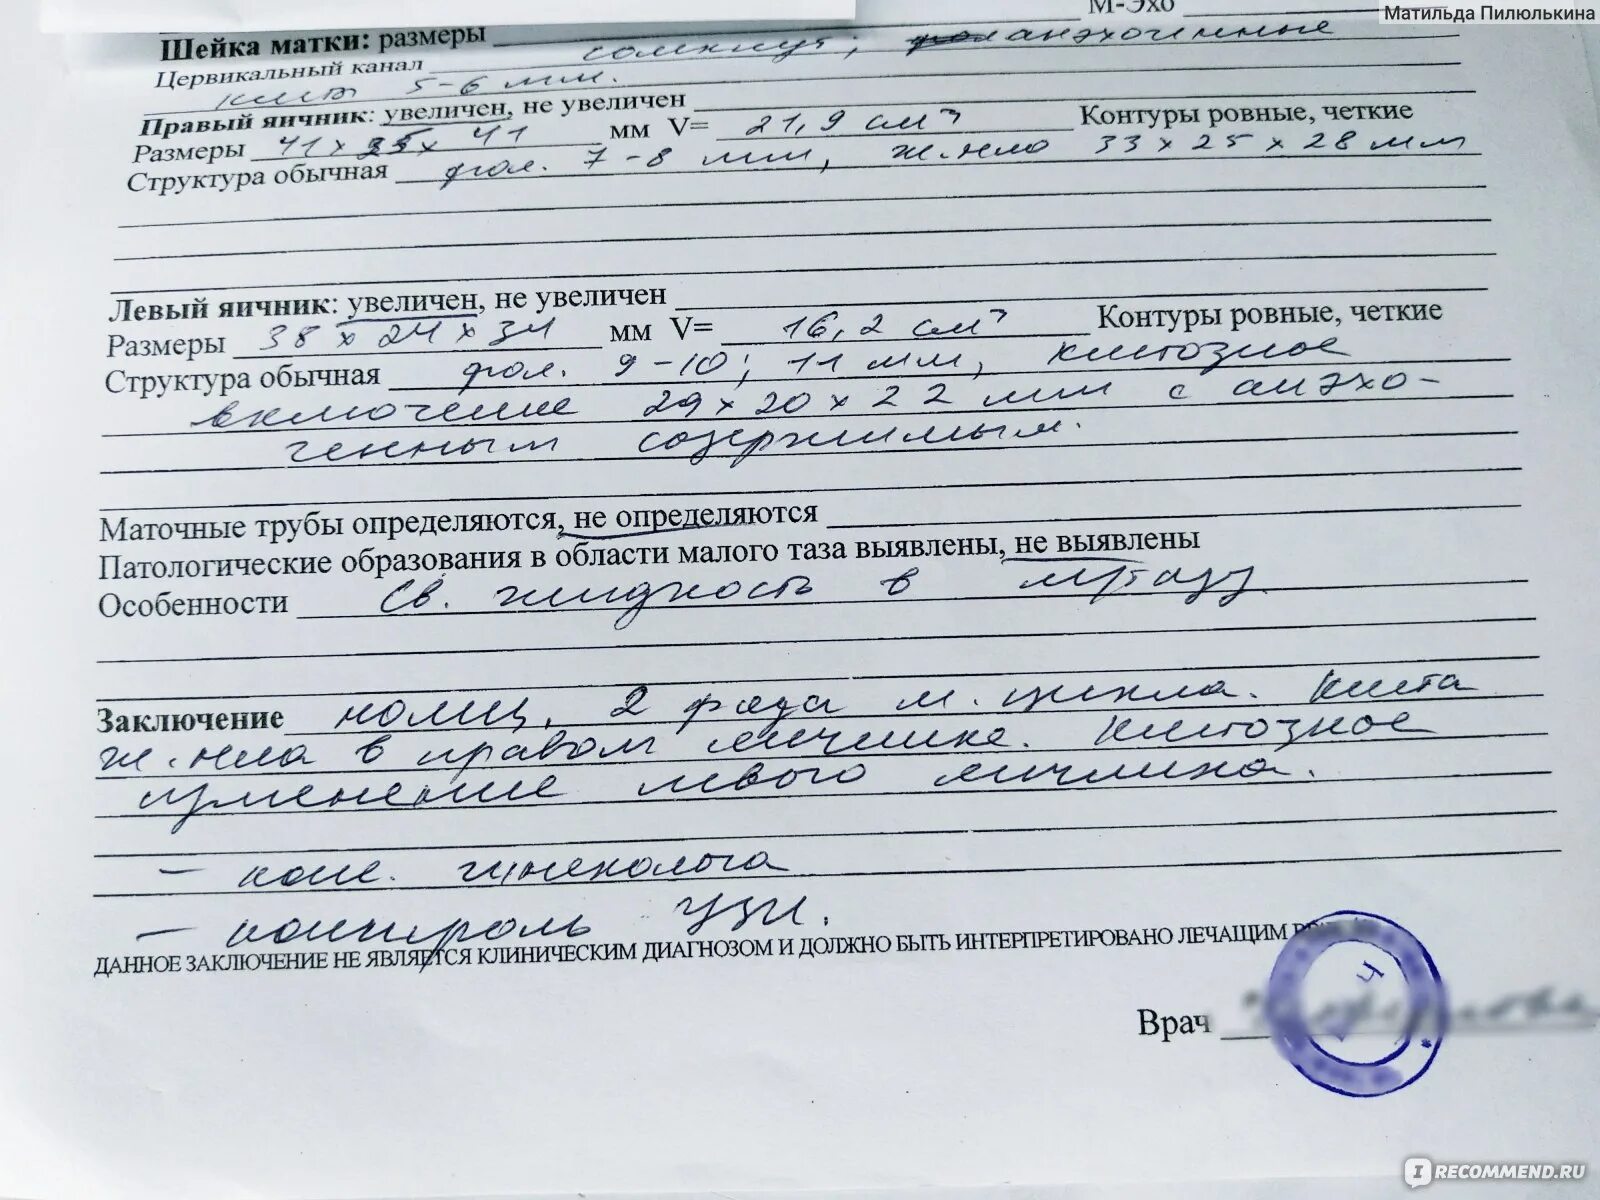 Матильда Пилюлькина
М-Эхо
Шейка матки: размеры
Цервикальный канал сомкнут, анэхогенные
киста 5-6 мм.
Правый яичник: увеличен, не увеличен
Размеры 41 x 35 x 41 мм V= 21,9 см³ Контуры ровные, четкие
Структура обычная фол. 7-8 мм, ж. тело 33 x 25 x 28 мм
Левый яичник: увеличен, не увеличен
Размеры 38 x 24 x 34 мм V= 16,2 см³ Контуры ровные, четкие
Структура обычная фол. 9-10; 11 мм, кистозное
включение 29 x 20 x 22 мм с анэхо-
генным содержимым.
Маточные трубы определяются, не определяются
Патологические образования в области малого таза выявлены, не выявлены
Особенности св. жидкость в м/тазу.
Заключение 2 фаза м. цикла. Киста
ж. тела в правом яичнике. Кистозное
изменение левого яичника.
- конс. гинеколога
- контроль УЗИ.
ДАННОЕ ЗАКЛЮЧЕНИЕ НЕ ЯВЛЯЕТСЯ КЛИНИЧЕСКИМ ДИАГНОЗОМ И ДОЛЖНО БЫТЬ ИНТЕРПРЕТИРОВАНО ЛЕЧАЩИМ
Врач
IRECOMMEND.RU